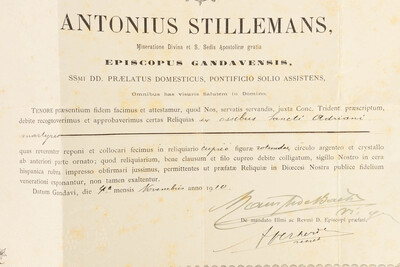 ANTONIUS STILLEMANS,
Miseratione Divina et S. Sedis Apostolicæ gratia
EPISCOPUS GANDAVENSIS,
SSMI DD. PRÆLATUS DOMESTICUS, PONTIFICIO SOLIO ASSISTENS,
Omnibus has visuris Salutem in Domino.
TENORE præsentium fidem facimus et attestamur, quod Nos, servatis servandis, juxta Conc. Trident. præscriptum,
debite recognoverimus et approbaverimus certas Reliquias ex ossibus Sancti Adriani
martyris
quas reverenter reponi et collocari fecimus in reliquiario cupreo figuræ rotundæ circulo argenteo et crystallo
ab anteriori parte ornato; quod reliquiarium, bene clausum et filo cupreo debite colligatum, sigillo Nostro in cera
hispanica rubra impresso obfirmari jussimus, permittentes ut præfatæ Reliquiæ in Diœcesi Nostra publicæ fidelium
venerationi exponantur, non tamen exaltentur.
Datum Gandavi, die 4a mensis Novembris anno 1910.
De mandato Illmi ac Revmi D. Episcopi præfati,